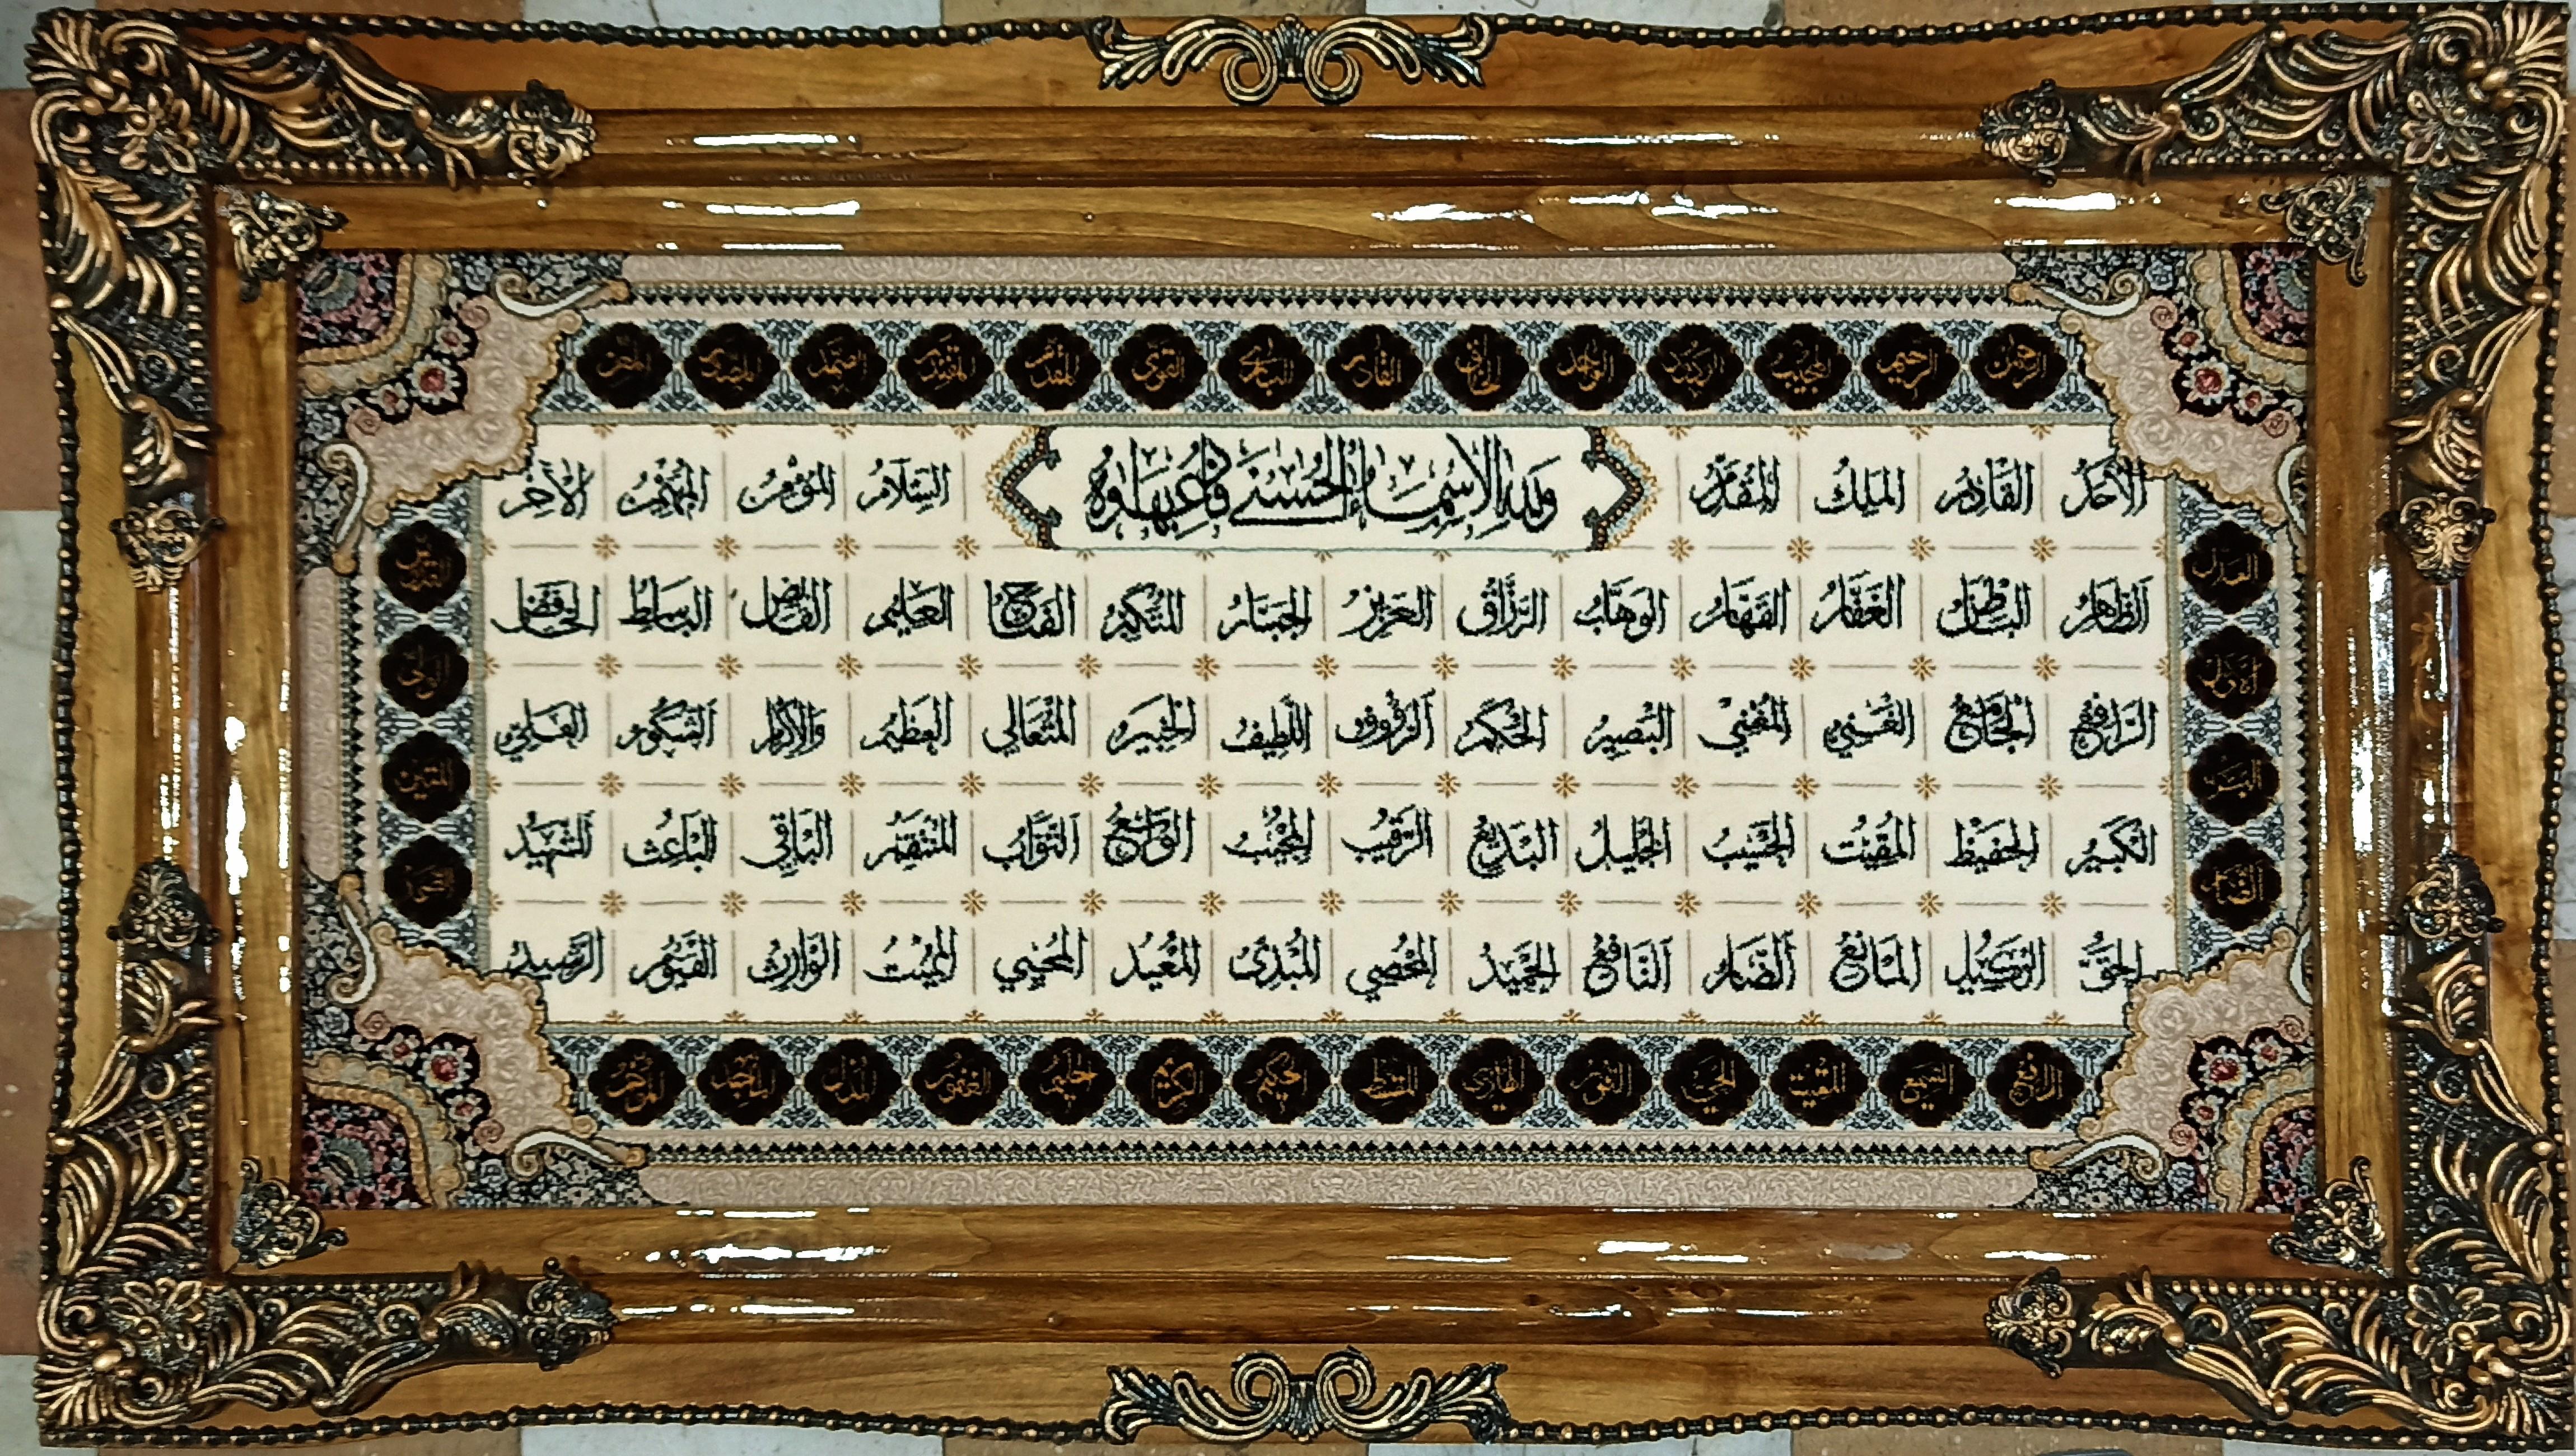 الرحمن الرحيم المجيب الواجد الخالق القادر البارئ القوي المقدم المقتدر الصمد المصور المعز
الأحد القادر الملك المقدر
ولله الاسماء الحسنى فادعوه بها
السلام المؤمن المهيمن الآخر
الظاهر الباطن الغفار القهار الوهاب الرزاق العزيز الجبار المتكبر الفتاح العليم القابض الباسط الخافض
الرافع الجامع الغني المغني البصير الحكم الرؤوف اللطيف الخبير المتعالي العظيم والإكرام الشكور العلي
الكبير الحفيظ المقيت الحسيب الجليل البديع الرقيب المجيب الواسع التواب المنتقم الباقي الباعث الشهيد
الحق الوكيل المانع الضار النافع الحميد المحصي المبدئ المعيد المحيي المميت الوارث القيوم الرشيد
العدل
الأول
القدوس
الولي
المتين
الرافع السميع المقيت الحي النور الهادي المقسط الحكيم الكريم حليم الغفور المذل الماجد المؤخر